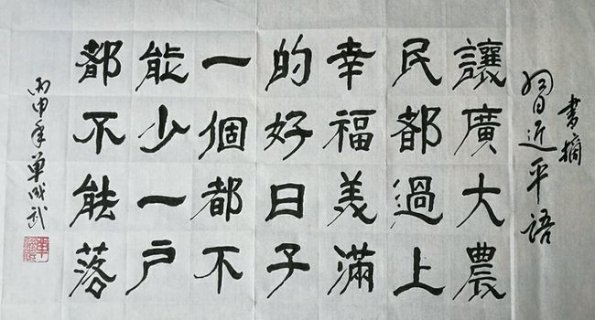 書摘
習近平語
讓廣大農
民都過上
幸福美滿
的好日子
一個都不
能少一戶
都不能落
丙申年单成武